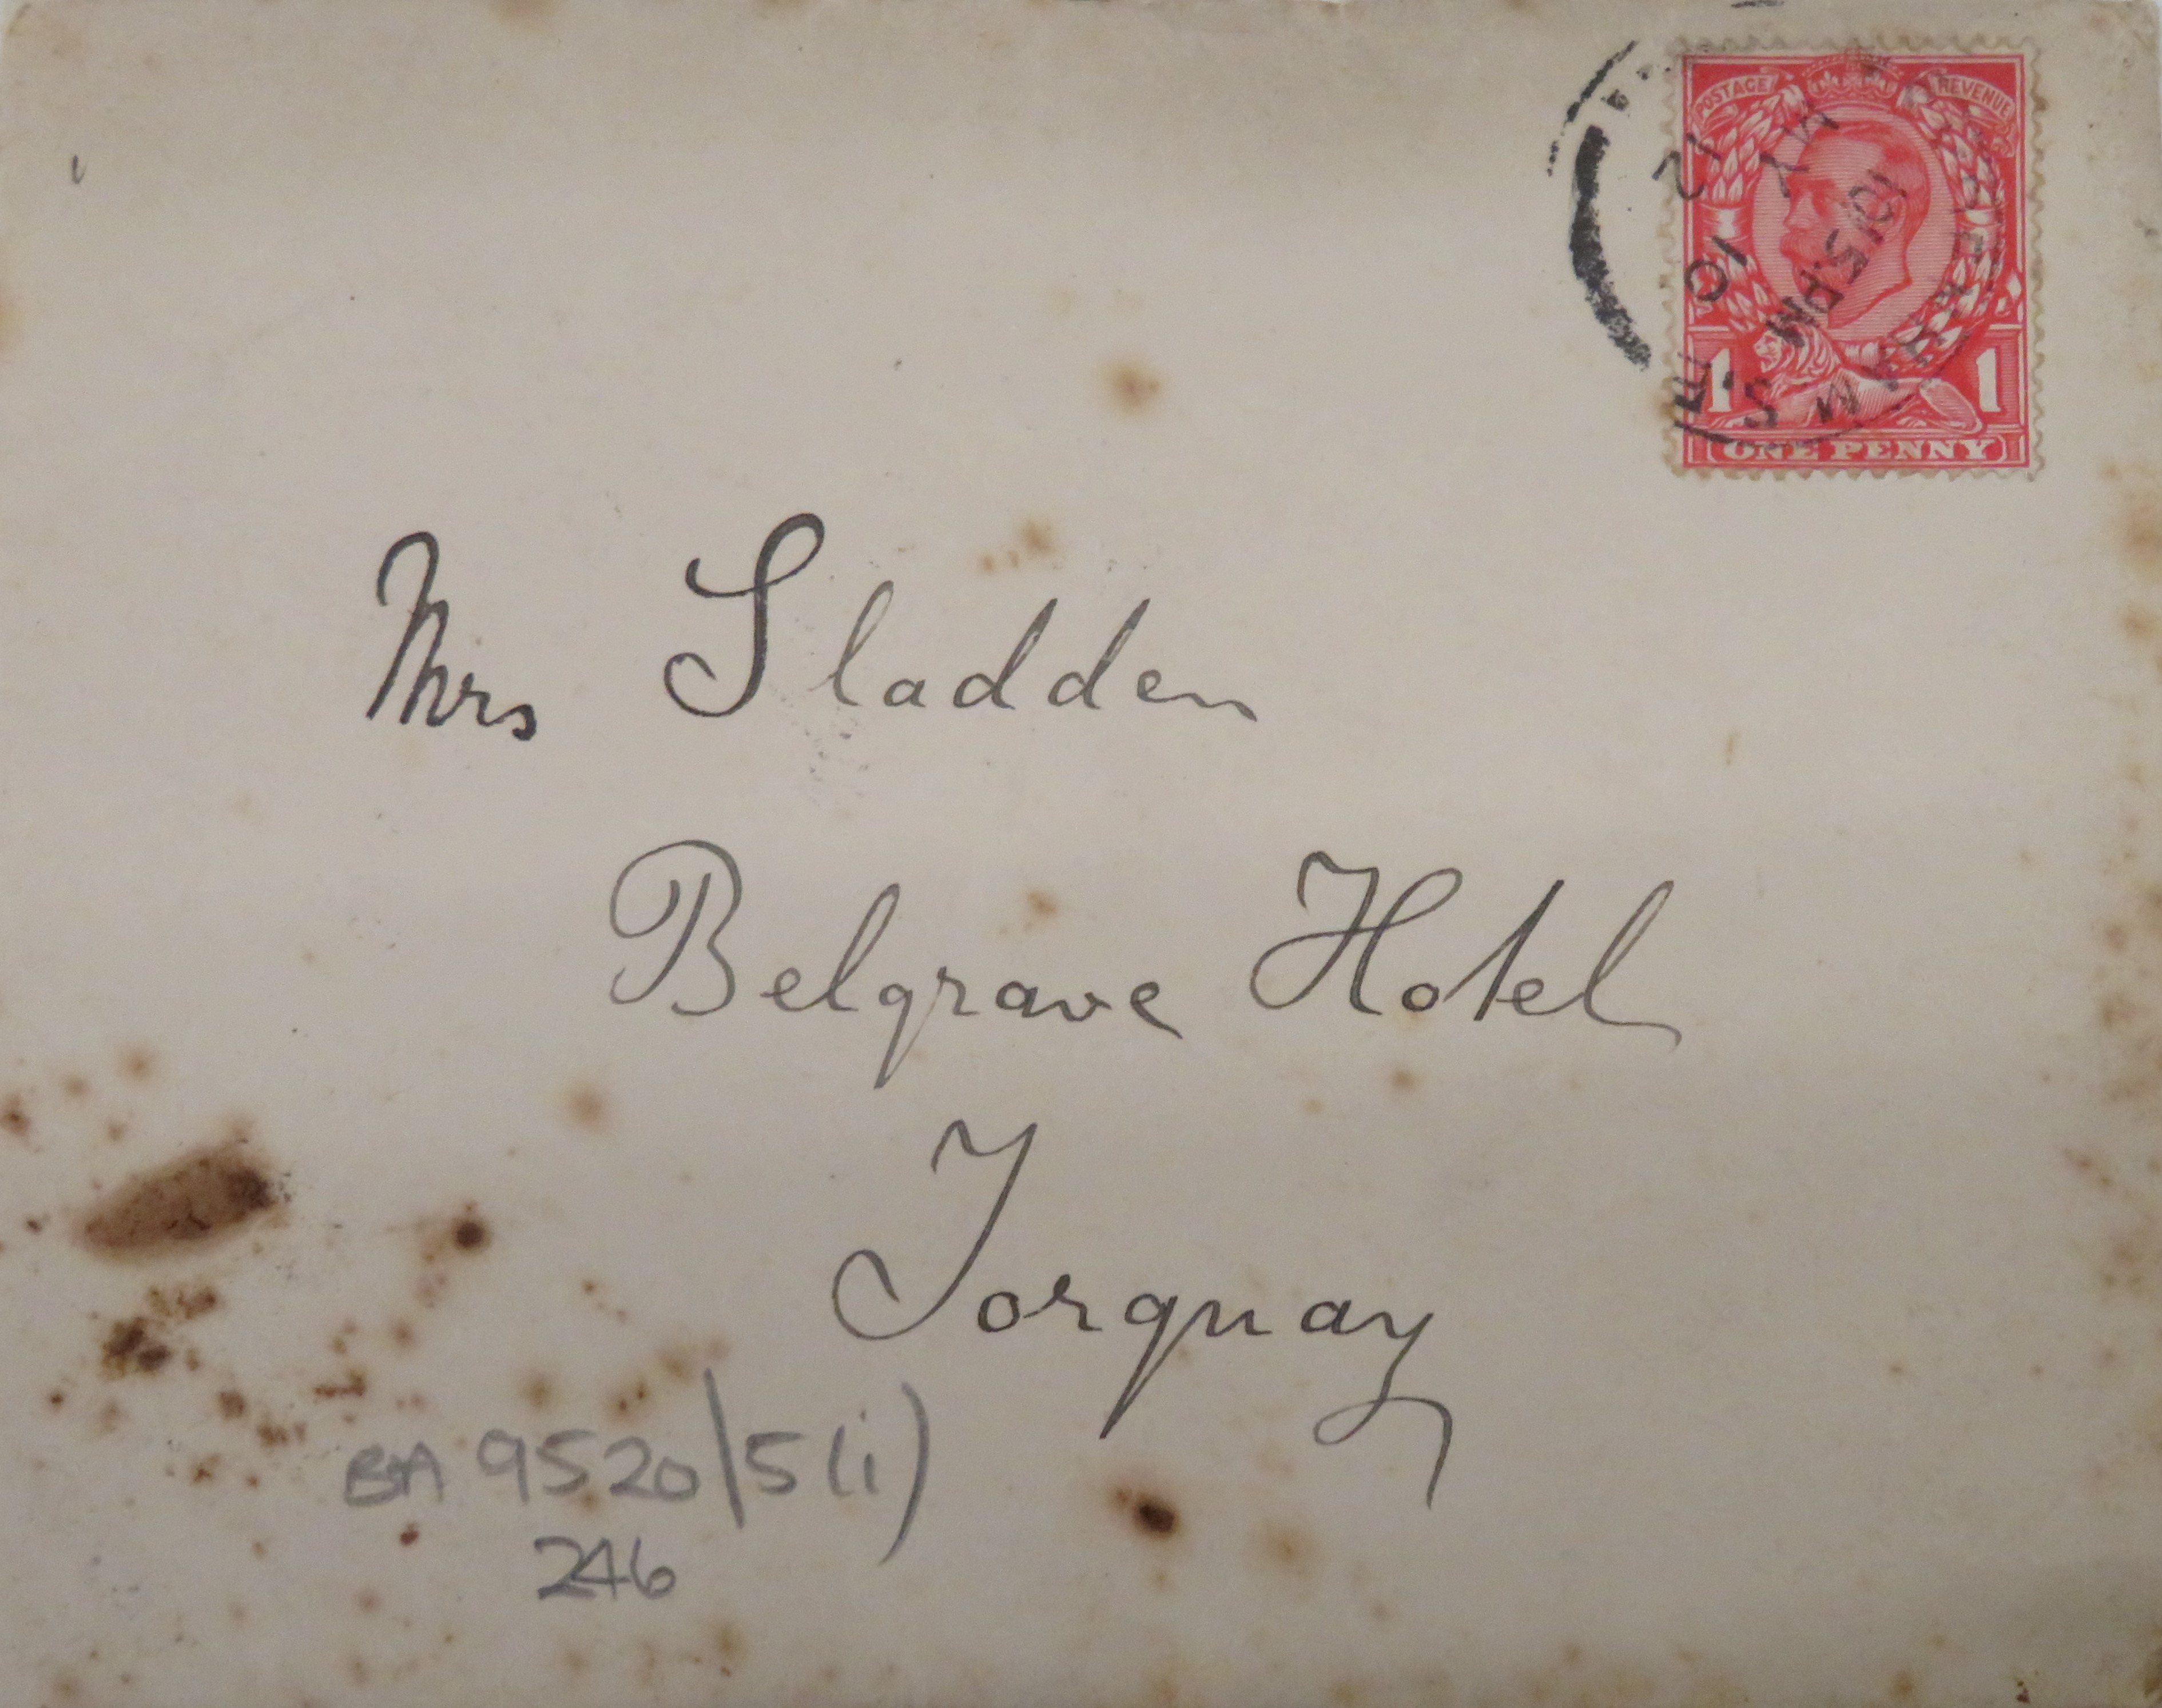 POSTAGE REVENUE
PECKHAM S.E
10.15 PM
MY 10
12
1 1
ONE PENNY
Mrs Sladden
Belgrave Hotel
Torquay
BA 9520/5(i)
246